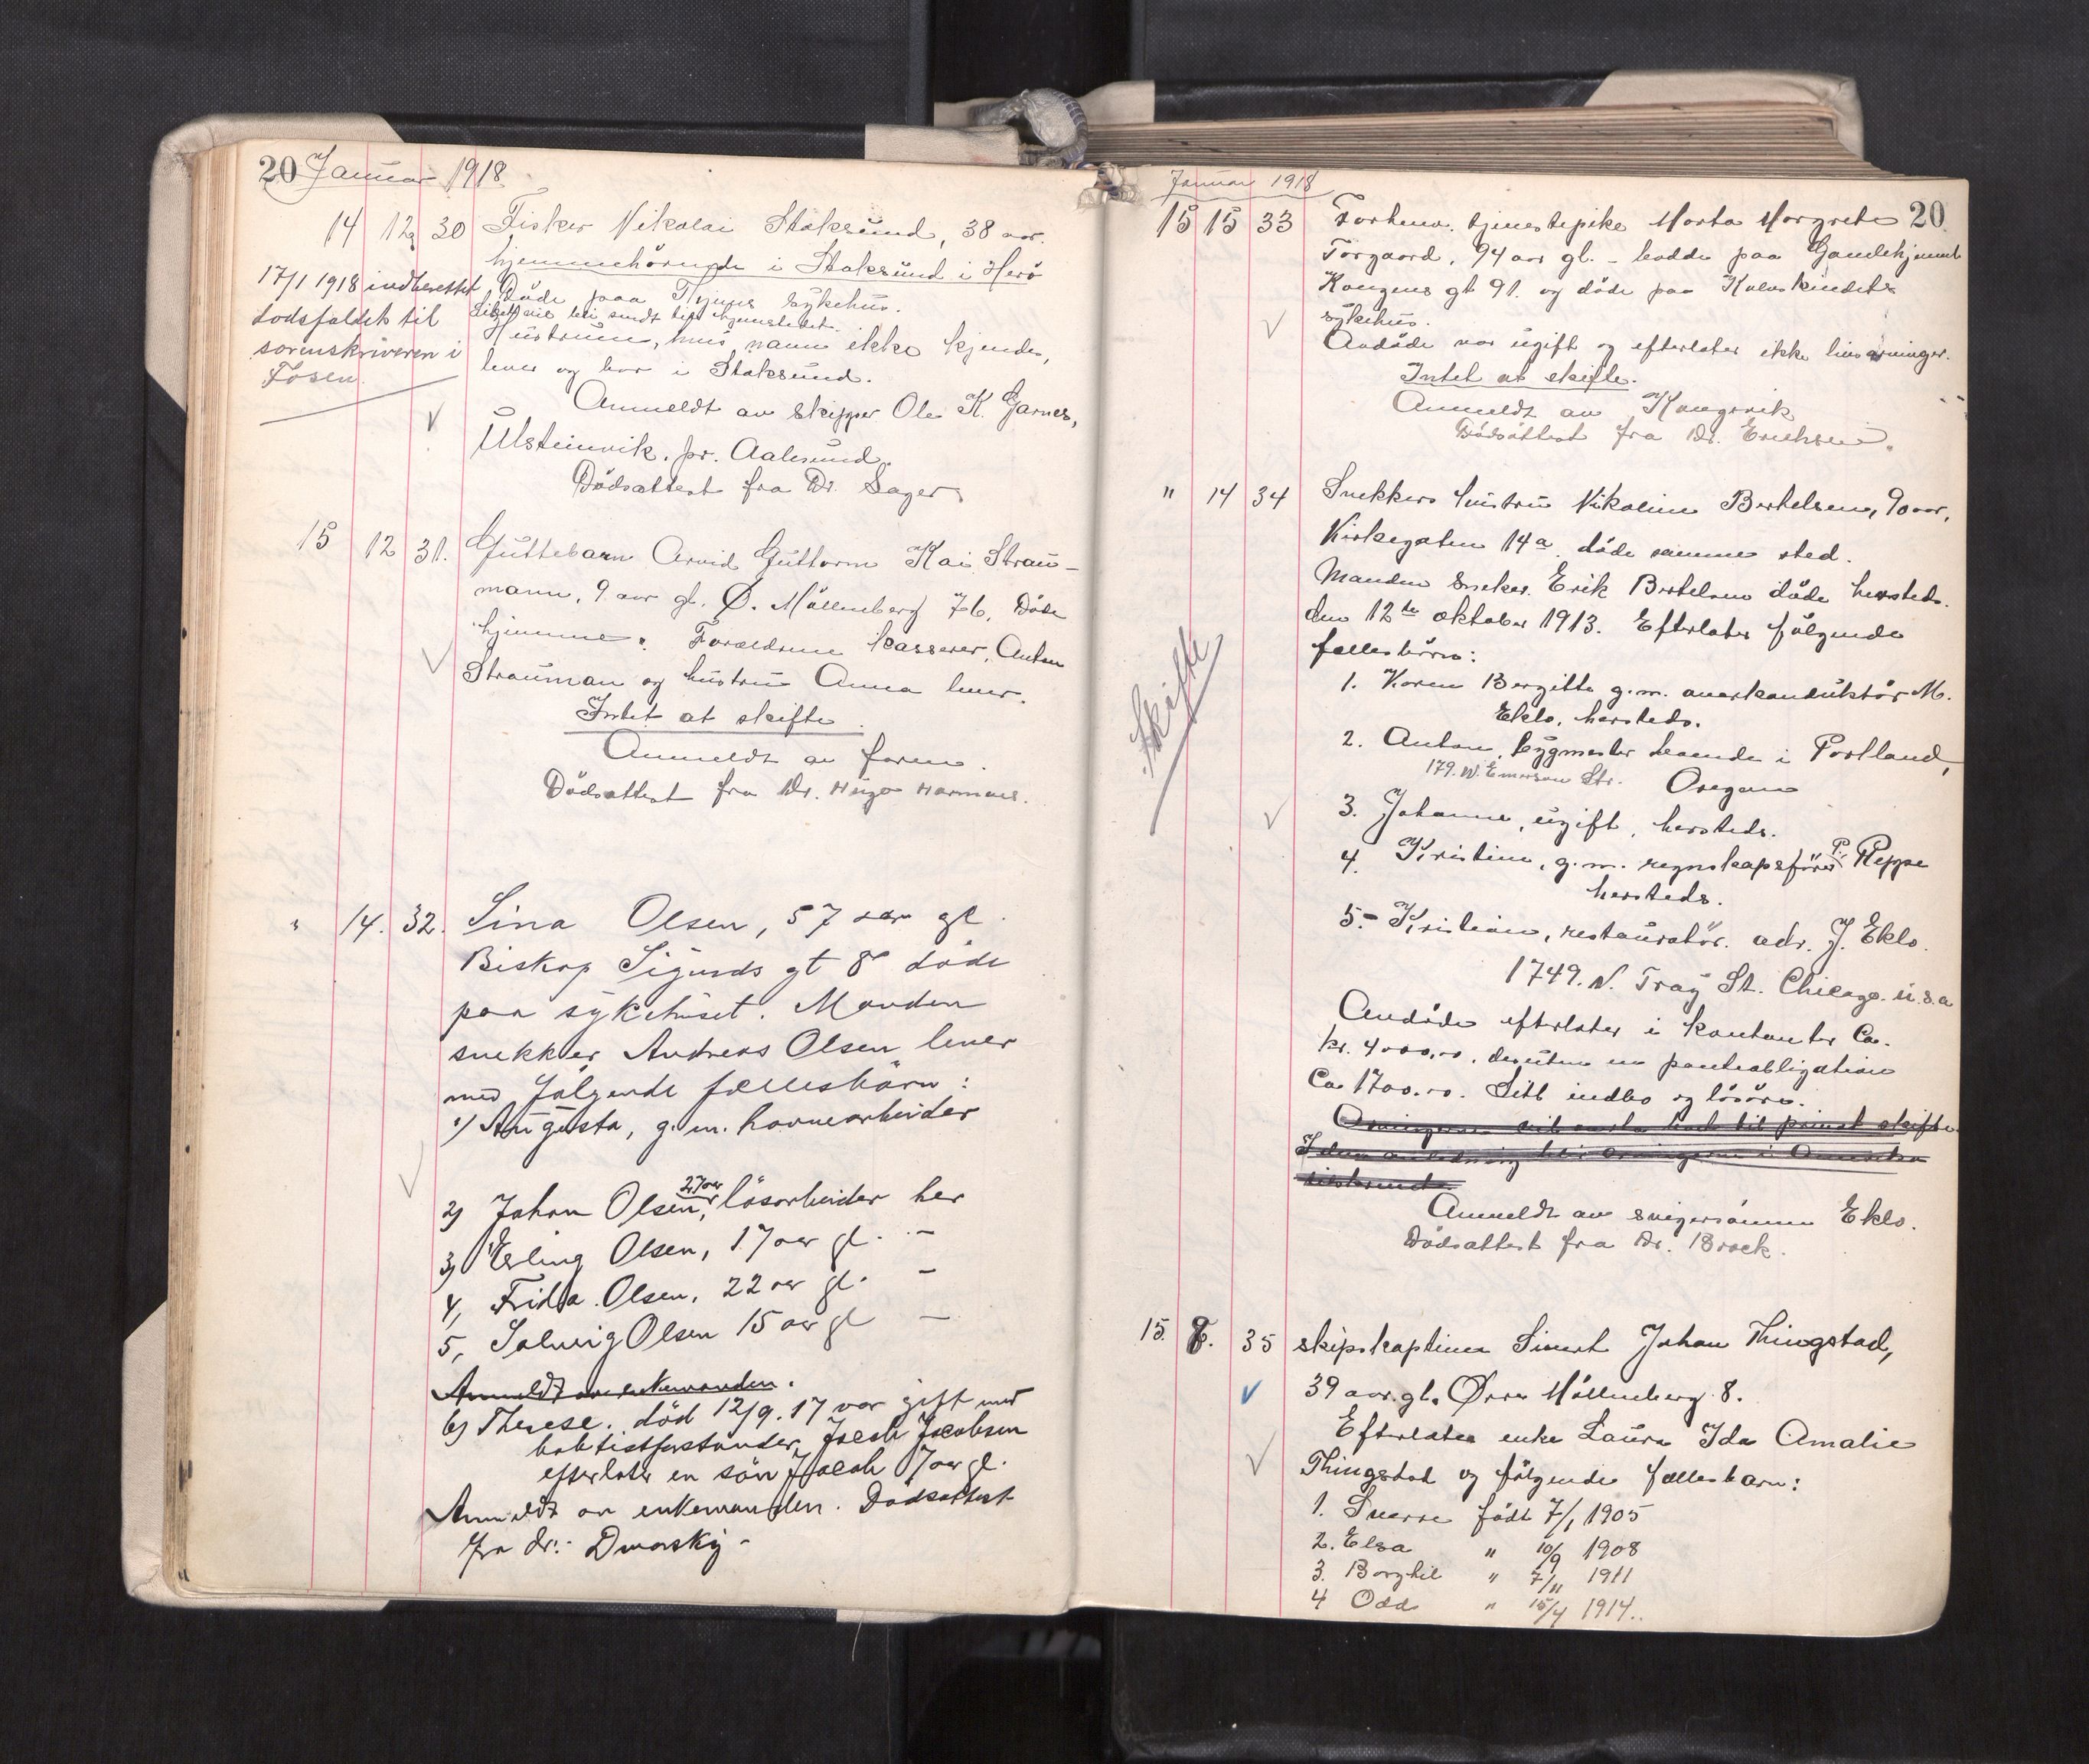 20 Januar 1918
14 12 30 Fisker Nikolai Stoksund, 38 aar.
hjemmehörende i Stoksund i Herö
Döde paa Thjems sykehus.
Liket vil bli sendt til hjemstedet.
Hustruen, hvis navn ikke kjendes,
lever og bor i Stoksund.
17/1 1918 indberettet
dodsfaldet til
sorenskriveren i
Fosen.
Anmeldt av skipper Ole K. Garnes,
Ulsteinvik. pr. Aalesund.
Dödsattest fra Dr. Sager
15 12 31. Guttebarn Arvid Guttorm Kai Strau-
mann, 9 aar gl. Ø. Möllenberg 76. Döde
hjemme. Foreldrene kasserer, Anton
Strauman og hustru Anna lever.
Intet at skifte.
Anmeldt av faren.
Dödsattest fra Dr. Hugo
" 14. 32. Lina Olsen, 57 aar gl.
Biskop Sigurds gt 8 döde
paa sykehuset. Manden
snekker Andreas Olsen lever
med följende fællesbörn:
1) Augusta, g. m. havnearbeider
2) Johan Olsen, 27 aar lösarbeider her
3) Erling Olsen, 17 aar gl. -
4, Frida Olsen, 22 aar gl. -
5, Solveig Olsen 15 aar gl -
Anmeldt av enkemanden.
6) Therese. död 12/9. 17 var gift med
babtistforstander Jacob Jacobsen
efterlater en sön Jacob 7 aar gl.
Anmeldt av enkemanden. Dödsattest
fra dr: Dworsky -
Januar 1918
20
15 15 33 Forhenv. tjenestepike Marta Margrete
Torgaard, 94 aar gl. - bodde paa Gamlehjemmet
Kongens gt 91. og döde paa Kalvskindets
sykehus.
Avdöde var ugift og efterlater ikke livsarvinger.
Intet at skifte.
Anmeldt av Kongsvik
Dödsattest fra Dr. Erichsen.
" 14 34 Snekkers hustru Nikoline Bertelsen, 90 aar,
Kirkegaten 14a. döde samme sted.
Manden sneker Erik Bertelsen döde hersteds.
den 12te oktober 1913. Efterlater följende
fellesbörn:
Skifte
1. Karen Bergitte g. m. overkonduktör M.
Eklo, hersteds.
2. Anton, bygmester boende i Portland,
179. W. Emerson Str. Oregon
3. Johanne, ugift, hersteds.
4. Kristine, g. m. regnskapsförer P. Reppe
hersteds.
5. - Kristian, restauratör. adr. J. Eklo.
1749. N. Troy St. Chicago. U.S.A
Avdöde efterlater i kontanter Ca.
kr. 4000,00. desuten en panteobligation
Ca 1700.00. Litt indbo og lösöre.
Anmeldt av svigersönnen Eklo.
Dödsattest fra Dr. Brock.
15. 8. 35 skipskaptein Sivert Johan Thingstad,
39 aar gl. Övre Möllenberg 8.
Efterlater enke Laura Ida Amalie
Thingstad og följende fellesbarn:
1. Sverre födt 7/1 1905
2. Elsa " 10/9 1908
3. Borghil " 7/11 1911
4 Odd " 15/4 1914..